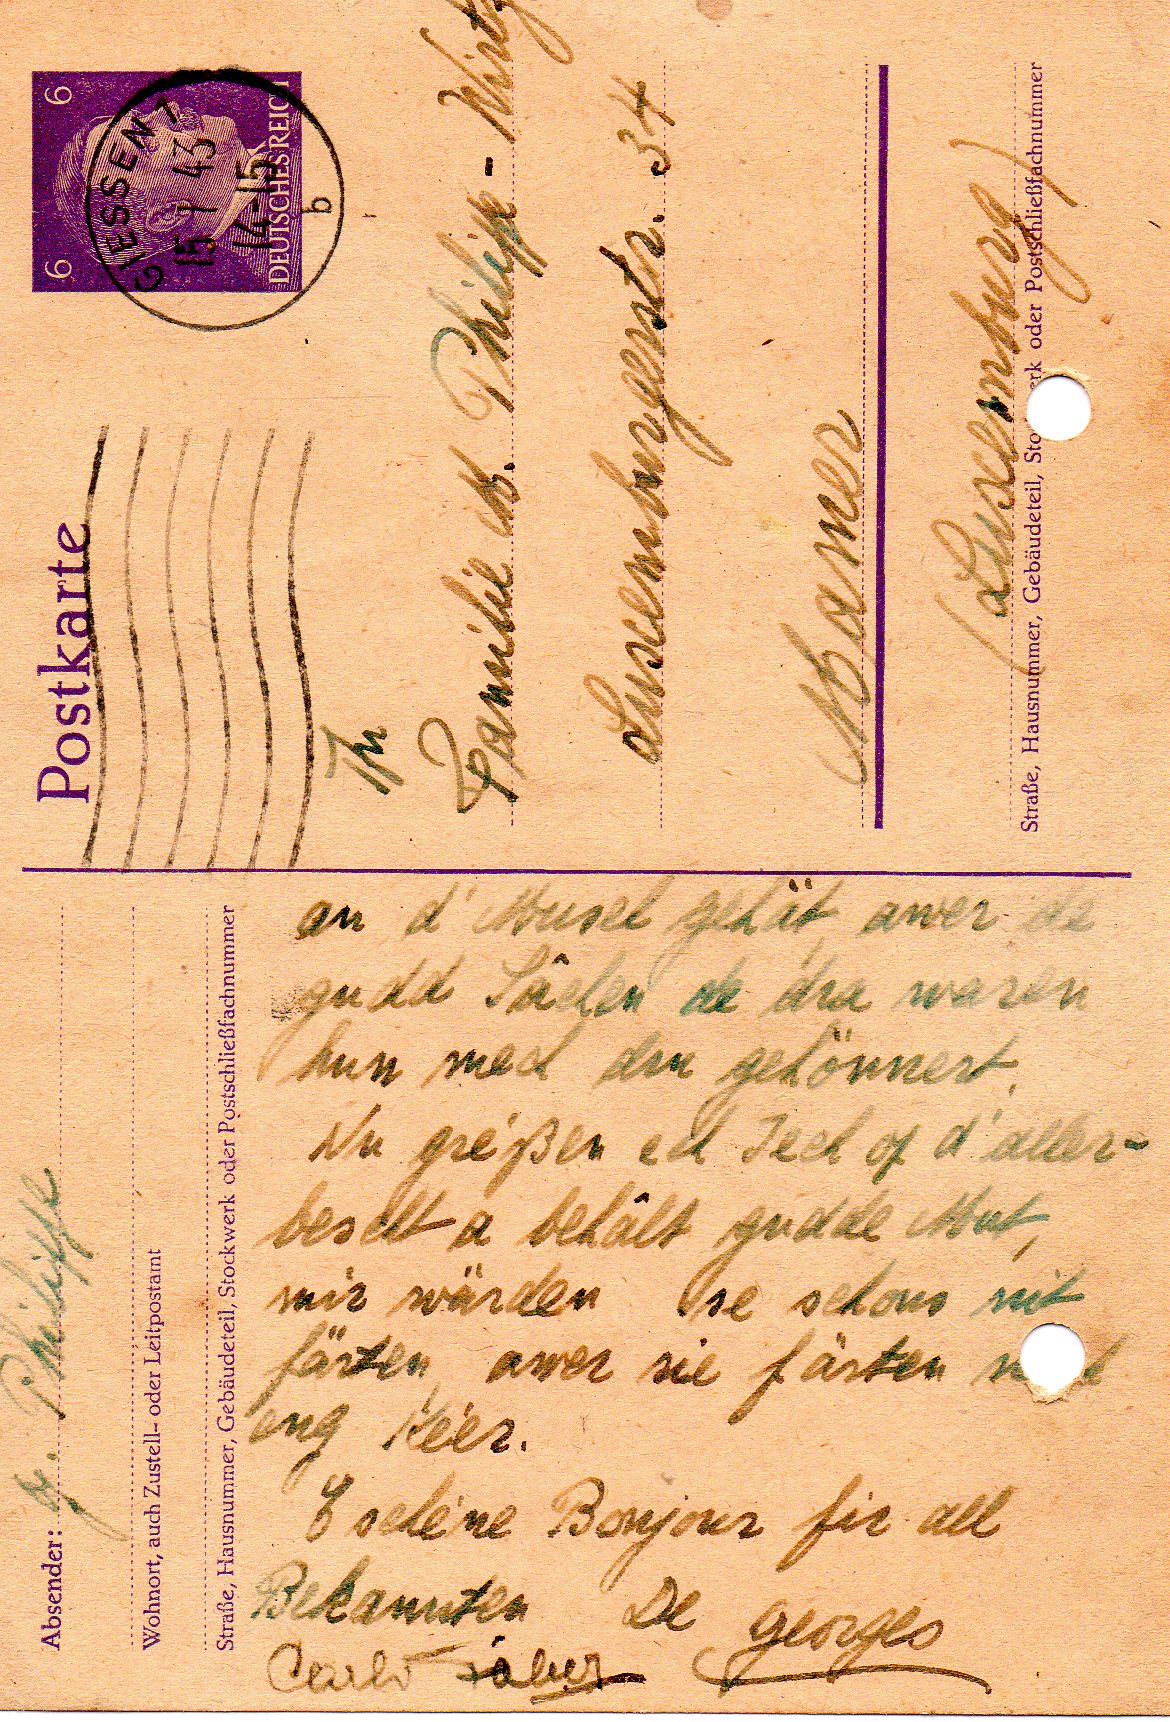 Postkarte
6 6
DEUTSCHES REICH
GIESSEN 1
15 1 43
14-15
b
An
Familie M. Philippe - Wirtz
Luxemburgerstr. 34
Mamer
(Luxemburg)
Straße, Hausnummer, Gebäudeteil, Stockwerk oder Postschließfachnummer
Absender: G. Philippe
Wohnort, auch Zustell- oder Leitpostamt
Straße, Hausnummer, Gebäudeteil, Stockwerk oder Postschließfachnummer
an d'Musel gehät awer de
gudd Sâchen de dra waren
hun mech dru gehönnert.
Nu gréißen ech Iech op d'aller-
bescht a behâlt gudde Mut,
mir wärden se schons nit
färten, awer sie färten
eng Kéer.
E schéne Bonjour fir all
Bekannten De Georges
Carlo Faber